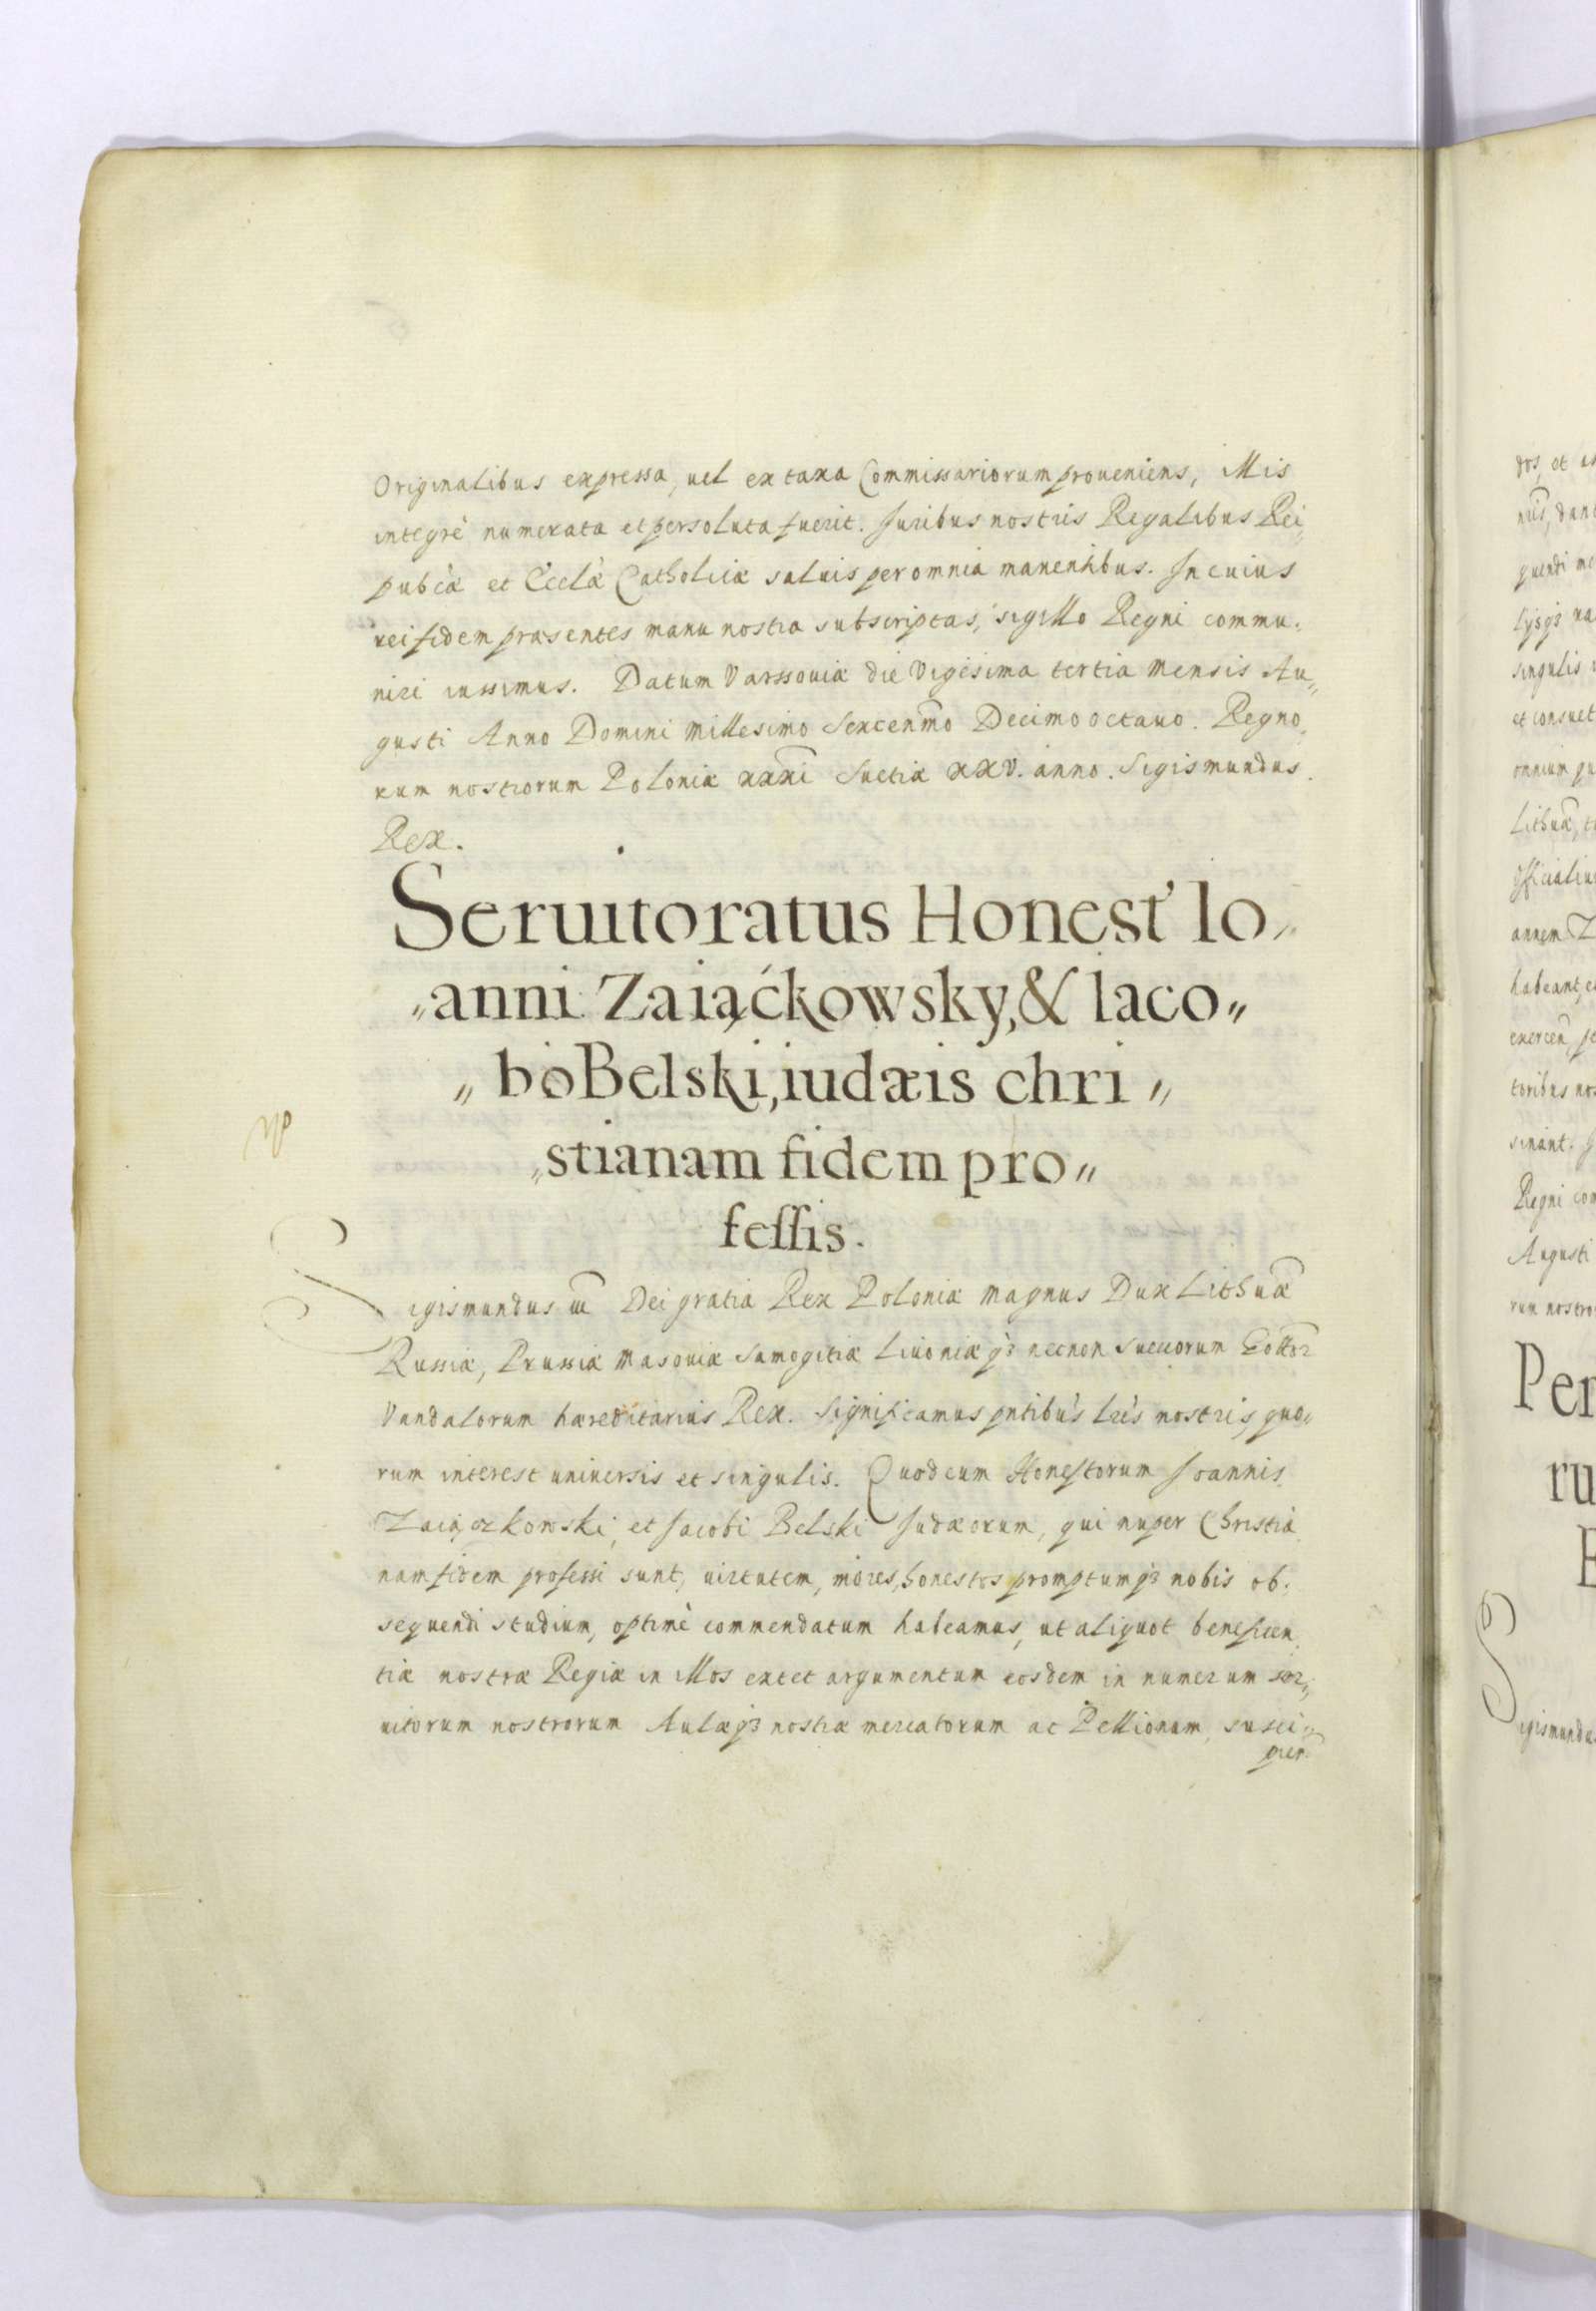 Originalibus expressa, uel ex taxa Commissariorum proueniens, illis
integrè numerata et persoluta fuerit. Iuribus nostris Regalibus Rei„
pubcæ et Ecclæ Catholicæ saluis per omnia manentibus. In cuius
rei fidem præsentes manu nostra subscriptas, sigillo Regni commu„
niri iussimus. Datum Varssouiæ die Vigesima tertia Mensis Au„
gusti Anno Domini Millesimo Sexcenmo Decimo octauo. Regno„
rum nostrorum Poloniæ xxxi Suetiæ XXV. anno. Sigismundus
Rex.
Seruitoratus Honest' Io„
„anni Zaiąćkowsky, & Iaco„
„bo Belski, iudæis chri„
„stianam fidem pro„
fessis.
Sigismundus iii Dei gratia Rex Poloniæ Magnus Dux Lithuæ
Russiæ, Prussiæ Masouiæ Samogitiæ Liuoniæqꝫ necnon Sueuorum Gottoꝝ
Vandalorum hæreditarius Rex. Significamus pntibus lris nostris, quo„
rum interest uniuersis et singulis. Quod cum Honestorum Ioannis
Zaiączkowski, et Iacobi Belski Iudæorum, qui nuper Christia
nam fidem professi sunt, uirtutem, mores, honestos promptumqꝫ nobis ob„
sequendi studium, optimè commendatum habeamus, ut aliquot beneficen
tiæ nostræ Regiæ in illos extet argumentum eosdem in numerum ser„
uitorum nostrorum Aulæqꝫ nostræ mercatorum ac Pellionum, susci„
pien
dos, et
Lithuæ,
habeant,
sinant.
Regni
Augusti
Per
ru
Sigismundus